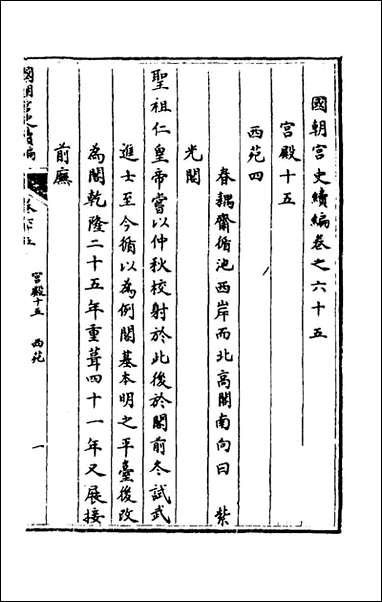 國朝宮史續編卷之六十五
宮殿十五
西苑四
春耦齋循池西岸而北高閣南向曰 紫
光閣
聖祖仁皇帝嘗以仲秋校射於此後於閣前冬試武
進士至今循以為例閣基本明之平臺後改
為閣乾隆二十五年重葺四十一年又展接
前廡
國朝宮史續編
宮殿十五 西苑
一